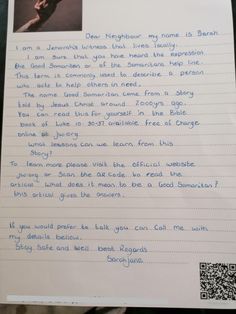 Dear Neighbour my name is Sarah
I am a Jehovah's witness that lives locally.
I am sure that you have heard the expression
the Good Samaritan or of the Samaritans help line.
This term is commonly used to describe a person
who acts to help others in need.
The name Good Samaritan come from a story
told by Jesus Christ around 2000yrs ago.
You can read this for yourself in the Bible
book of Luke 10:30-37 available free of Charge
online at jw.org.
What lessons can we learn from this
Story?
To learn more please visit the official website
jw.org or Scan the QR code to read the
artical. What does it mean to be a Good Samaritan?
this artical gives the answers.
If you would prefer to talk you can Call me with
my details bellow.
Stay Safe and Well best Regards
Sarahjane